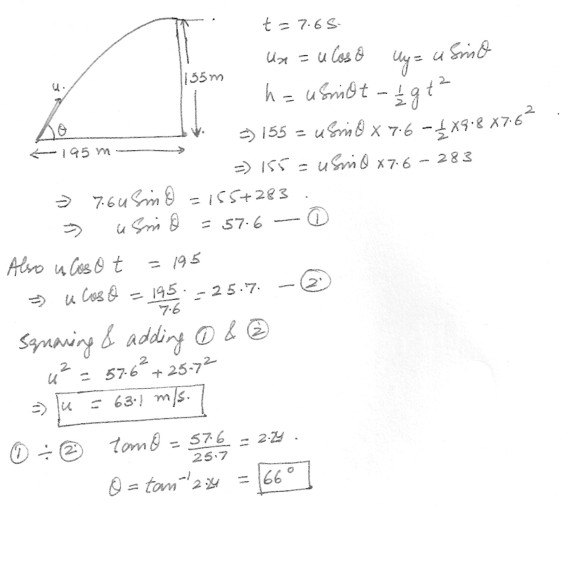 t = 7.6 s.
u.
155 m
θ
195 m
ux = u Cos θ   uy = u Sin θ
h = u Sin θ t − ½ g t²
⇒ 155 = u Sin θ × 7.6 − ½ × 9.8 × 7.6²
⇒ 155 = u Sin θ × 7.6 − 283
⇒ 7.6 u Sin θ = 155 + 283.
⇒ u Sin θ = 57.6 — ①
Also u Cos θ t = 195
⇒ u Cos θ = 195/7.6 = 25.7. — ②
Squaring & adding ① & ②
u² = 57.6² + 25.7²
⇒ u = 63.1 m/s.
① ÷ ②   tan θ = 57.6/25.7 =
θ = tan⁻¹ = 66°